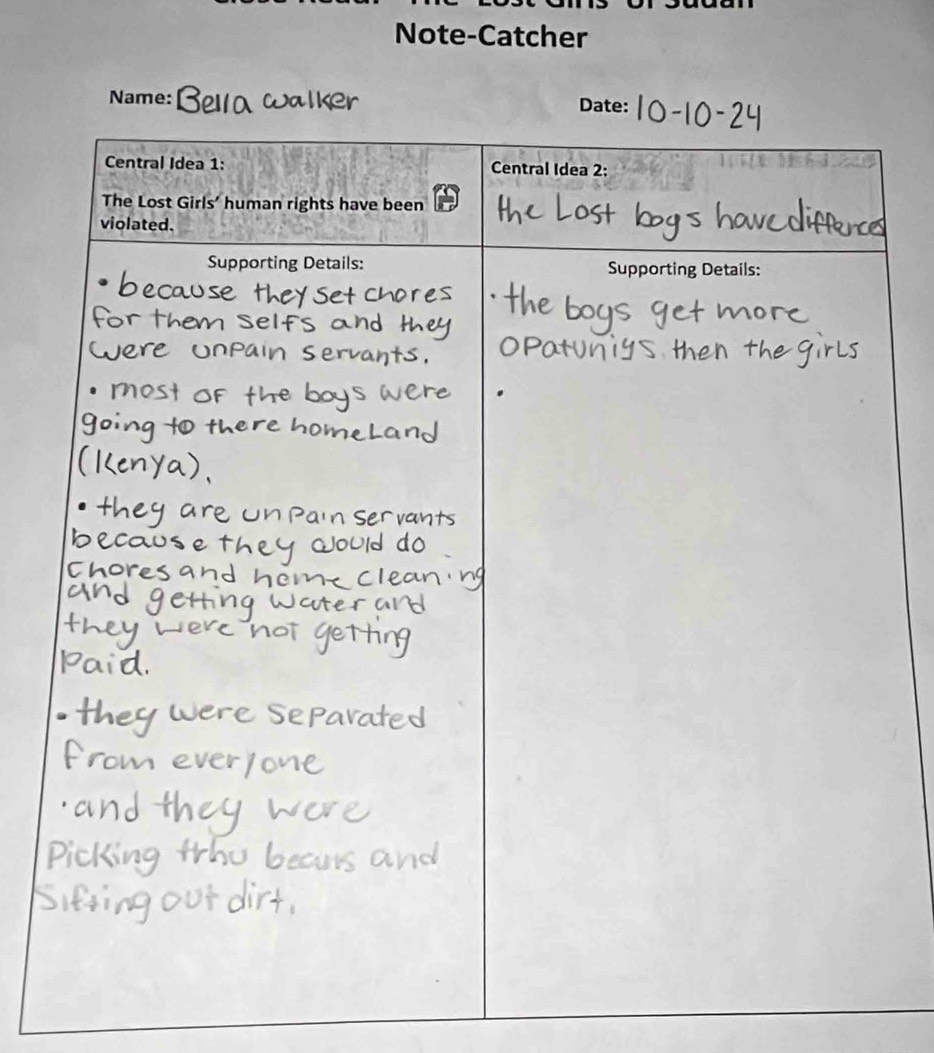 Close Read: "The Lost Girls of Sudan"
Note-Catcher
Name: Bella walker
Date: 10-10-24
Central Idea 1:
The Lost Girls' human rights have been
violated.
Supporting Details:
• because they set chores
for them selfs and they
were unpain servants.
• most of the boys were
going to there homeLand
(Kenya).
• they are unpain servants
because they would do
chores and home cleaning
and getting water and
they were not getting
paid.
• they were separated
from everyone
• and they were
Picking trhu beans and
Sifting out dirt.
Central Idea 2:
the Lost boys have differnces
Supporting Details:
• the boys get more
opatuniys then the girls
•